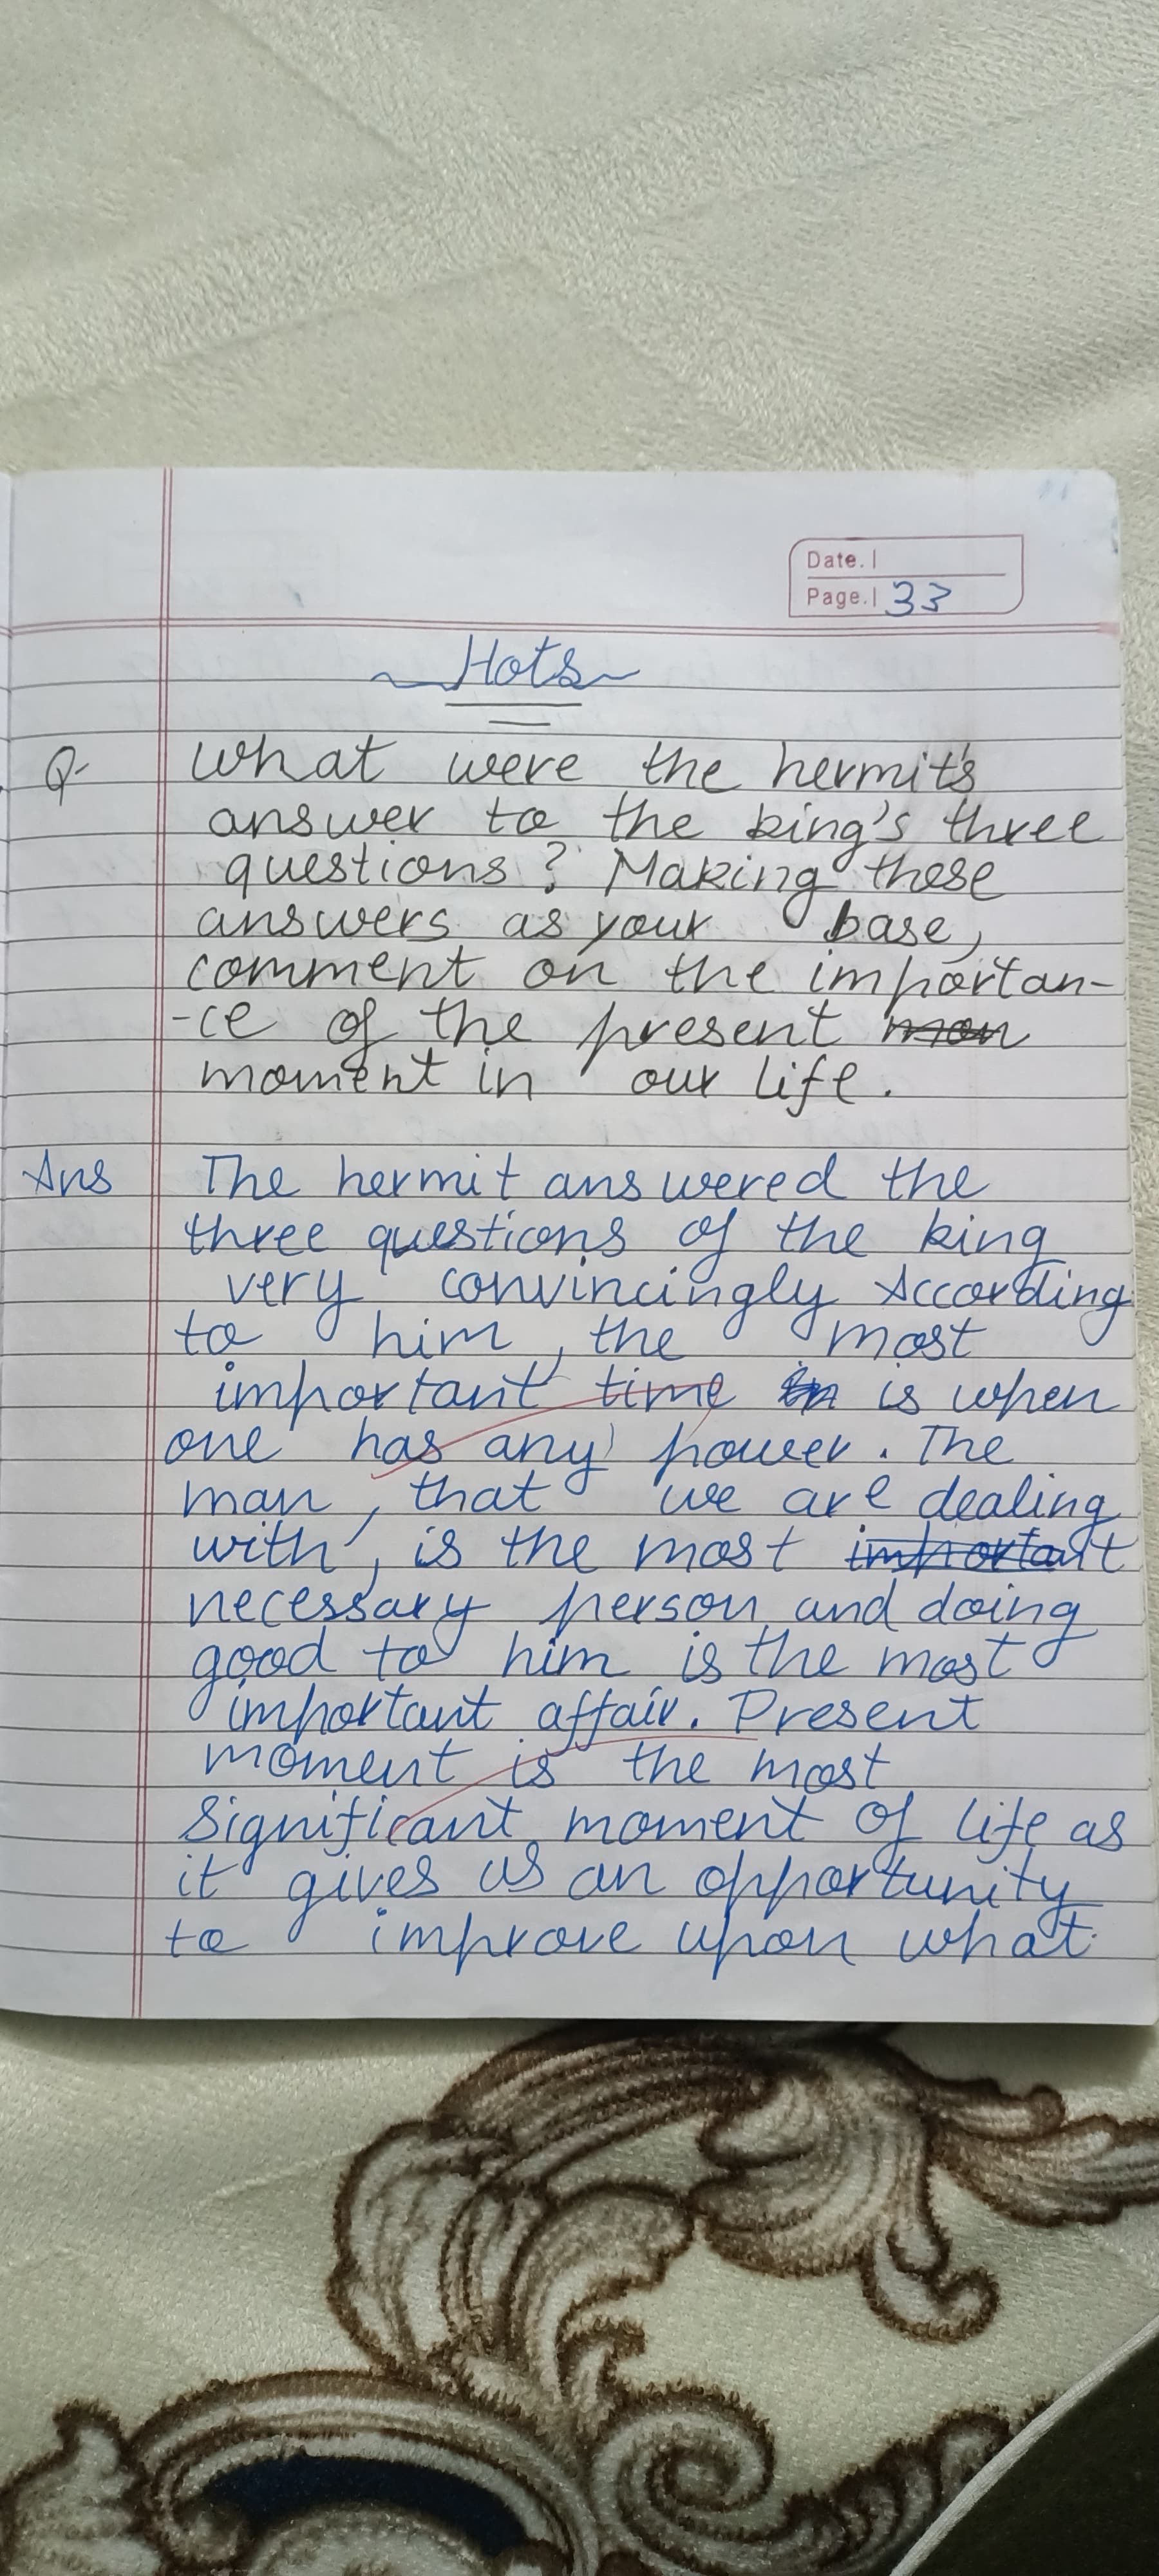 Date.
Page. 33
Hots
Q- What were the hermit's
answer to the king's three
questions? Making these
answers as your base,
comment on the importan-
-ce of the present mon
moment in our life.
Ans The hermit answered the
three questions of the king
very convincingly According
to him, the most
important time in is when
one has any power. The
man, that we are dealing
with, is the most important
necessary person and doing
good to him is the most
important affair. Present
moment is the most
significant moment of life as
it gives us an opportunity
to improve upon what